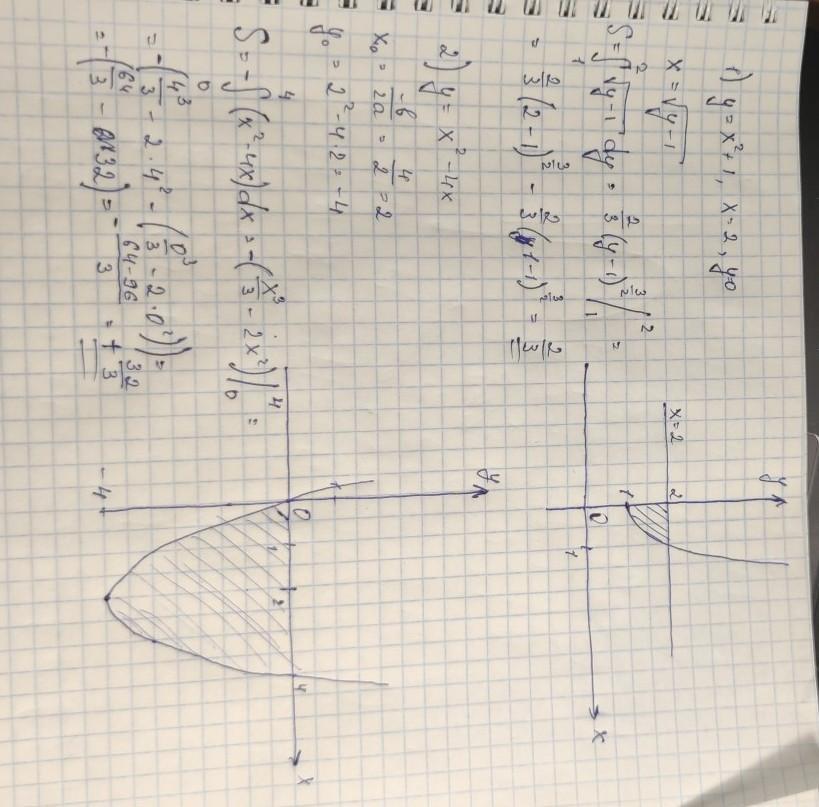 1) y = x² + 1, x = 2, y=0
x = √(y-1)
S = ∫₁² √(y-1) dy = 2/3 (y-1)^(3/2) |₁² =
= 2/3 (2-1)^(3/2) - 2/3 (1-1)^(3/2) = 2/3
y
x=2
2
1
0
1
x
2) y = x² - 4x
x₀ = -b/2a = 4/2 = 2
y₀ = 2² - 4·2 = -4
S = -∫₀⁴ (x² - 4x) dx = -(x³/3 - 2x²) |₀⁴ =
= -(4³/3 - 2·4² - (0³/3 - 2·0²)) =
= -(64/3 - 32) = - (64-96)/3 = + 32/3
y
1
0
1
2
4
x
-4